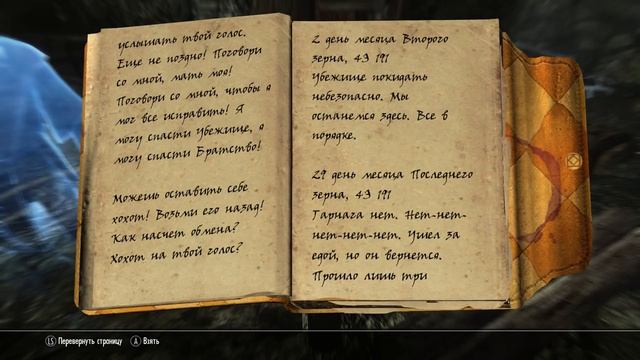 услышать твой голос.
Еще не поздно! Поговори
со мной, мать моя!
Поговори со мной, чтобы я
мог все исправить! Я
могу спасти Убежище, я
могу спасти Братство!
Можешь оставить себе
хохот! Возьми его назад!
Как насчет обмена?
Хохот на твой голос?
2 день месяца Второго
зерна, 4Э 191
Убежище покидать
небезопасно. Мы
останемся здесь. Все в
порядке.
29 день месяца Последнего
зерна, 4Э 191
Гарнага нет. Нет-нет-
нет-нет-нет. Ушел за
едой, но он вернется.
Прошло лишь три
LS Перевернуть страницу A Взять